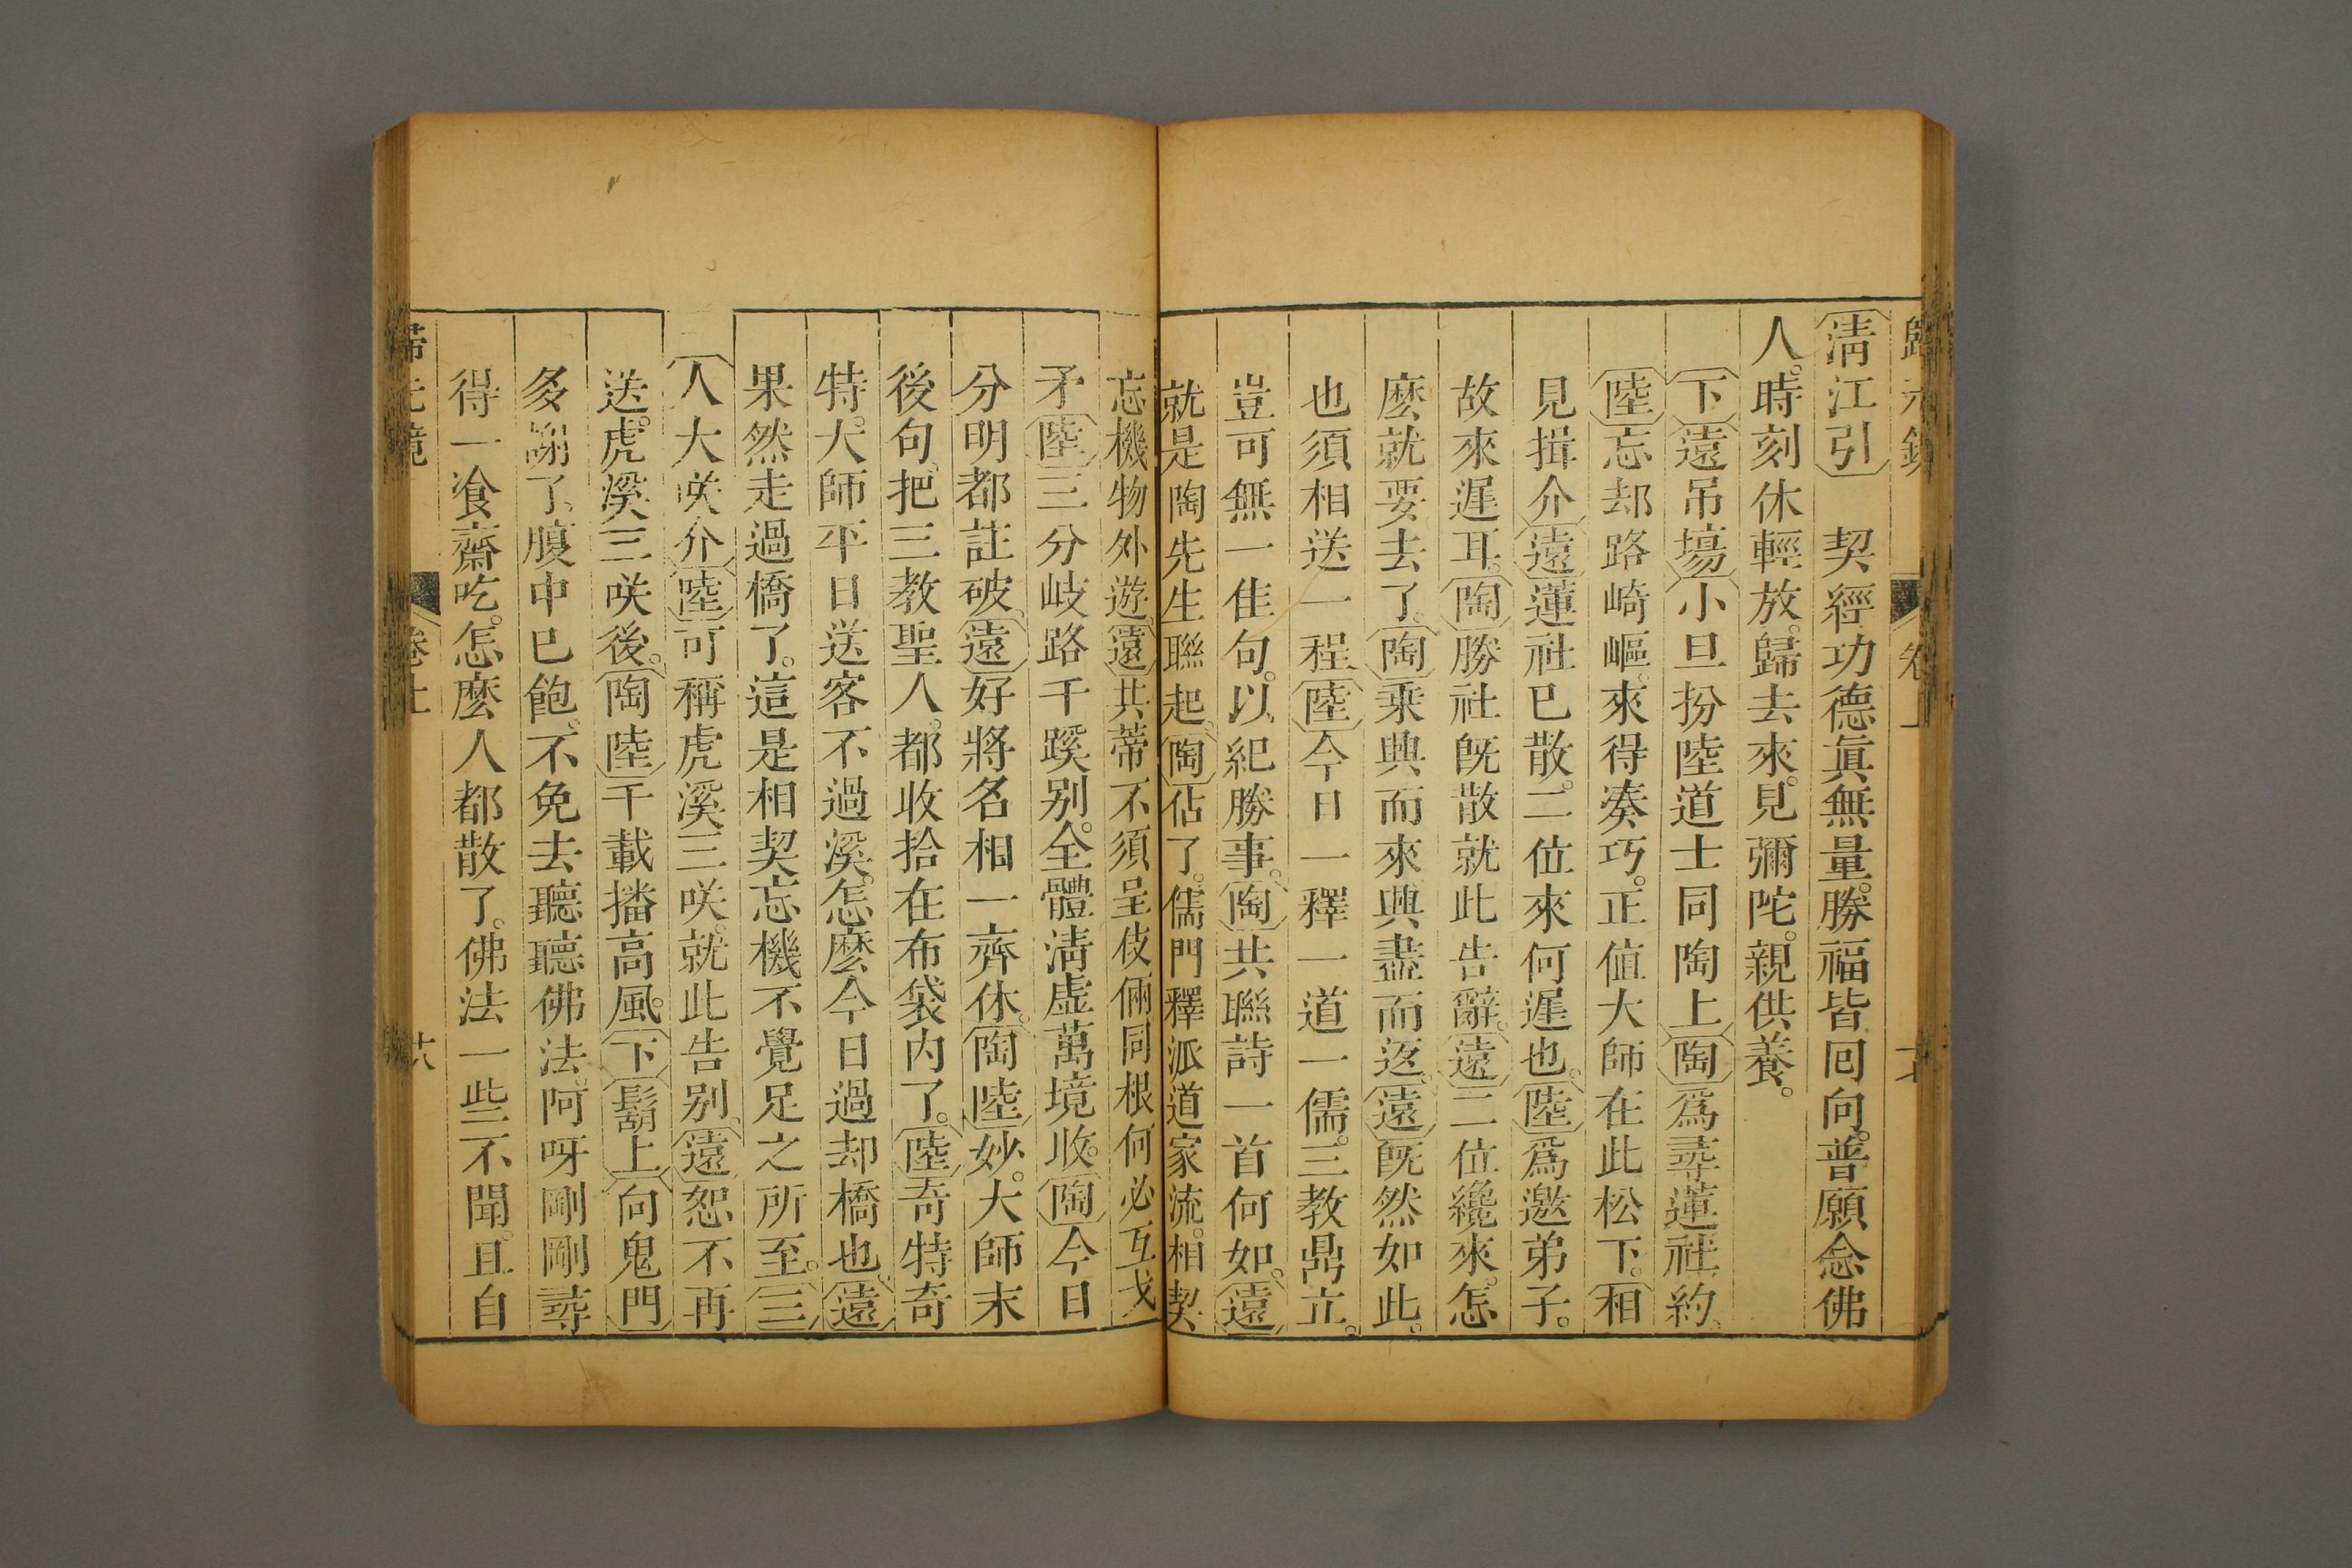 清江引　契經功德眞無量。勝福皆囘向。普願念佛
人。時刻休輕放。歸去來。見彌陀。親供養。
下遠吊塲小旦扮陸道士同陶上陶爲尋蓮社約。
陸忘却路崎嶇。來得凑巧。正値大師在此松下。相
見揖介遠蓮社已散。二位來何遲也。陸爲邀弟子。
故來遲耳。陶勝社旣散就此告辭。遠二位纔來。怎
麽就要去了。陶乘興而來興盡而返。遠旣然如此。
也須相送一程陸今日一釋一道一儒。三教鼎立。
豈可無一佳句。以紀勝事。陶共聯詩一首何如。遠
就是陶先生聯起。陶佔了。儒門釋派道家流。相契
忘機物外遊。遠共蒂不須呈伎倆同根何必互戈
矛陸三分岐路千蹊别。全體清虛萬境收。陶今日
分明都註破。遠好將名相一齊休。陶陸妙。大師末
後句。把三教聖人。都收拾在布袋内了。陸奇特奇
特。大師平日送客不過溪。怎麽今日過却橋也。遠
果然走過橋了。這是相契忘機不覺足之所至。三
人大咲介陸可稱虎溪三咲。就此告别。遠恕不再
送。虎溪三咲後。陶陸千載播高風。下鬍上向鬼門
多謝了。腹中已飽。不免去聽聽佛法。阿呀剛剛尋
得一飡齋吃。怎麽人都散了。佛法一些不聞。且自
卷上